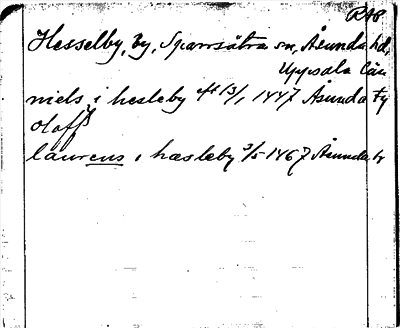 RAP
Hesselby, by, Sparrsätra sn, Åsunda hd,
Uppsala län
niels i hesleby eft 13/1 1447 Åsunda Fy
olaff
laurens i hæsleby 3/5 1467 Åsunda